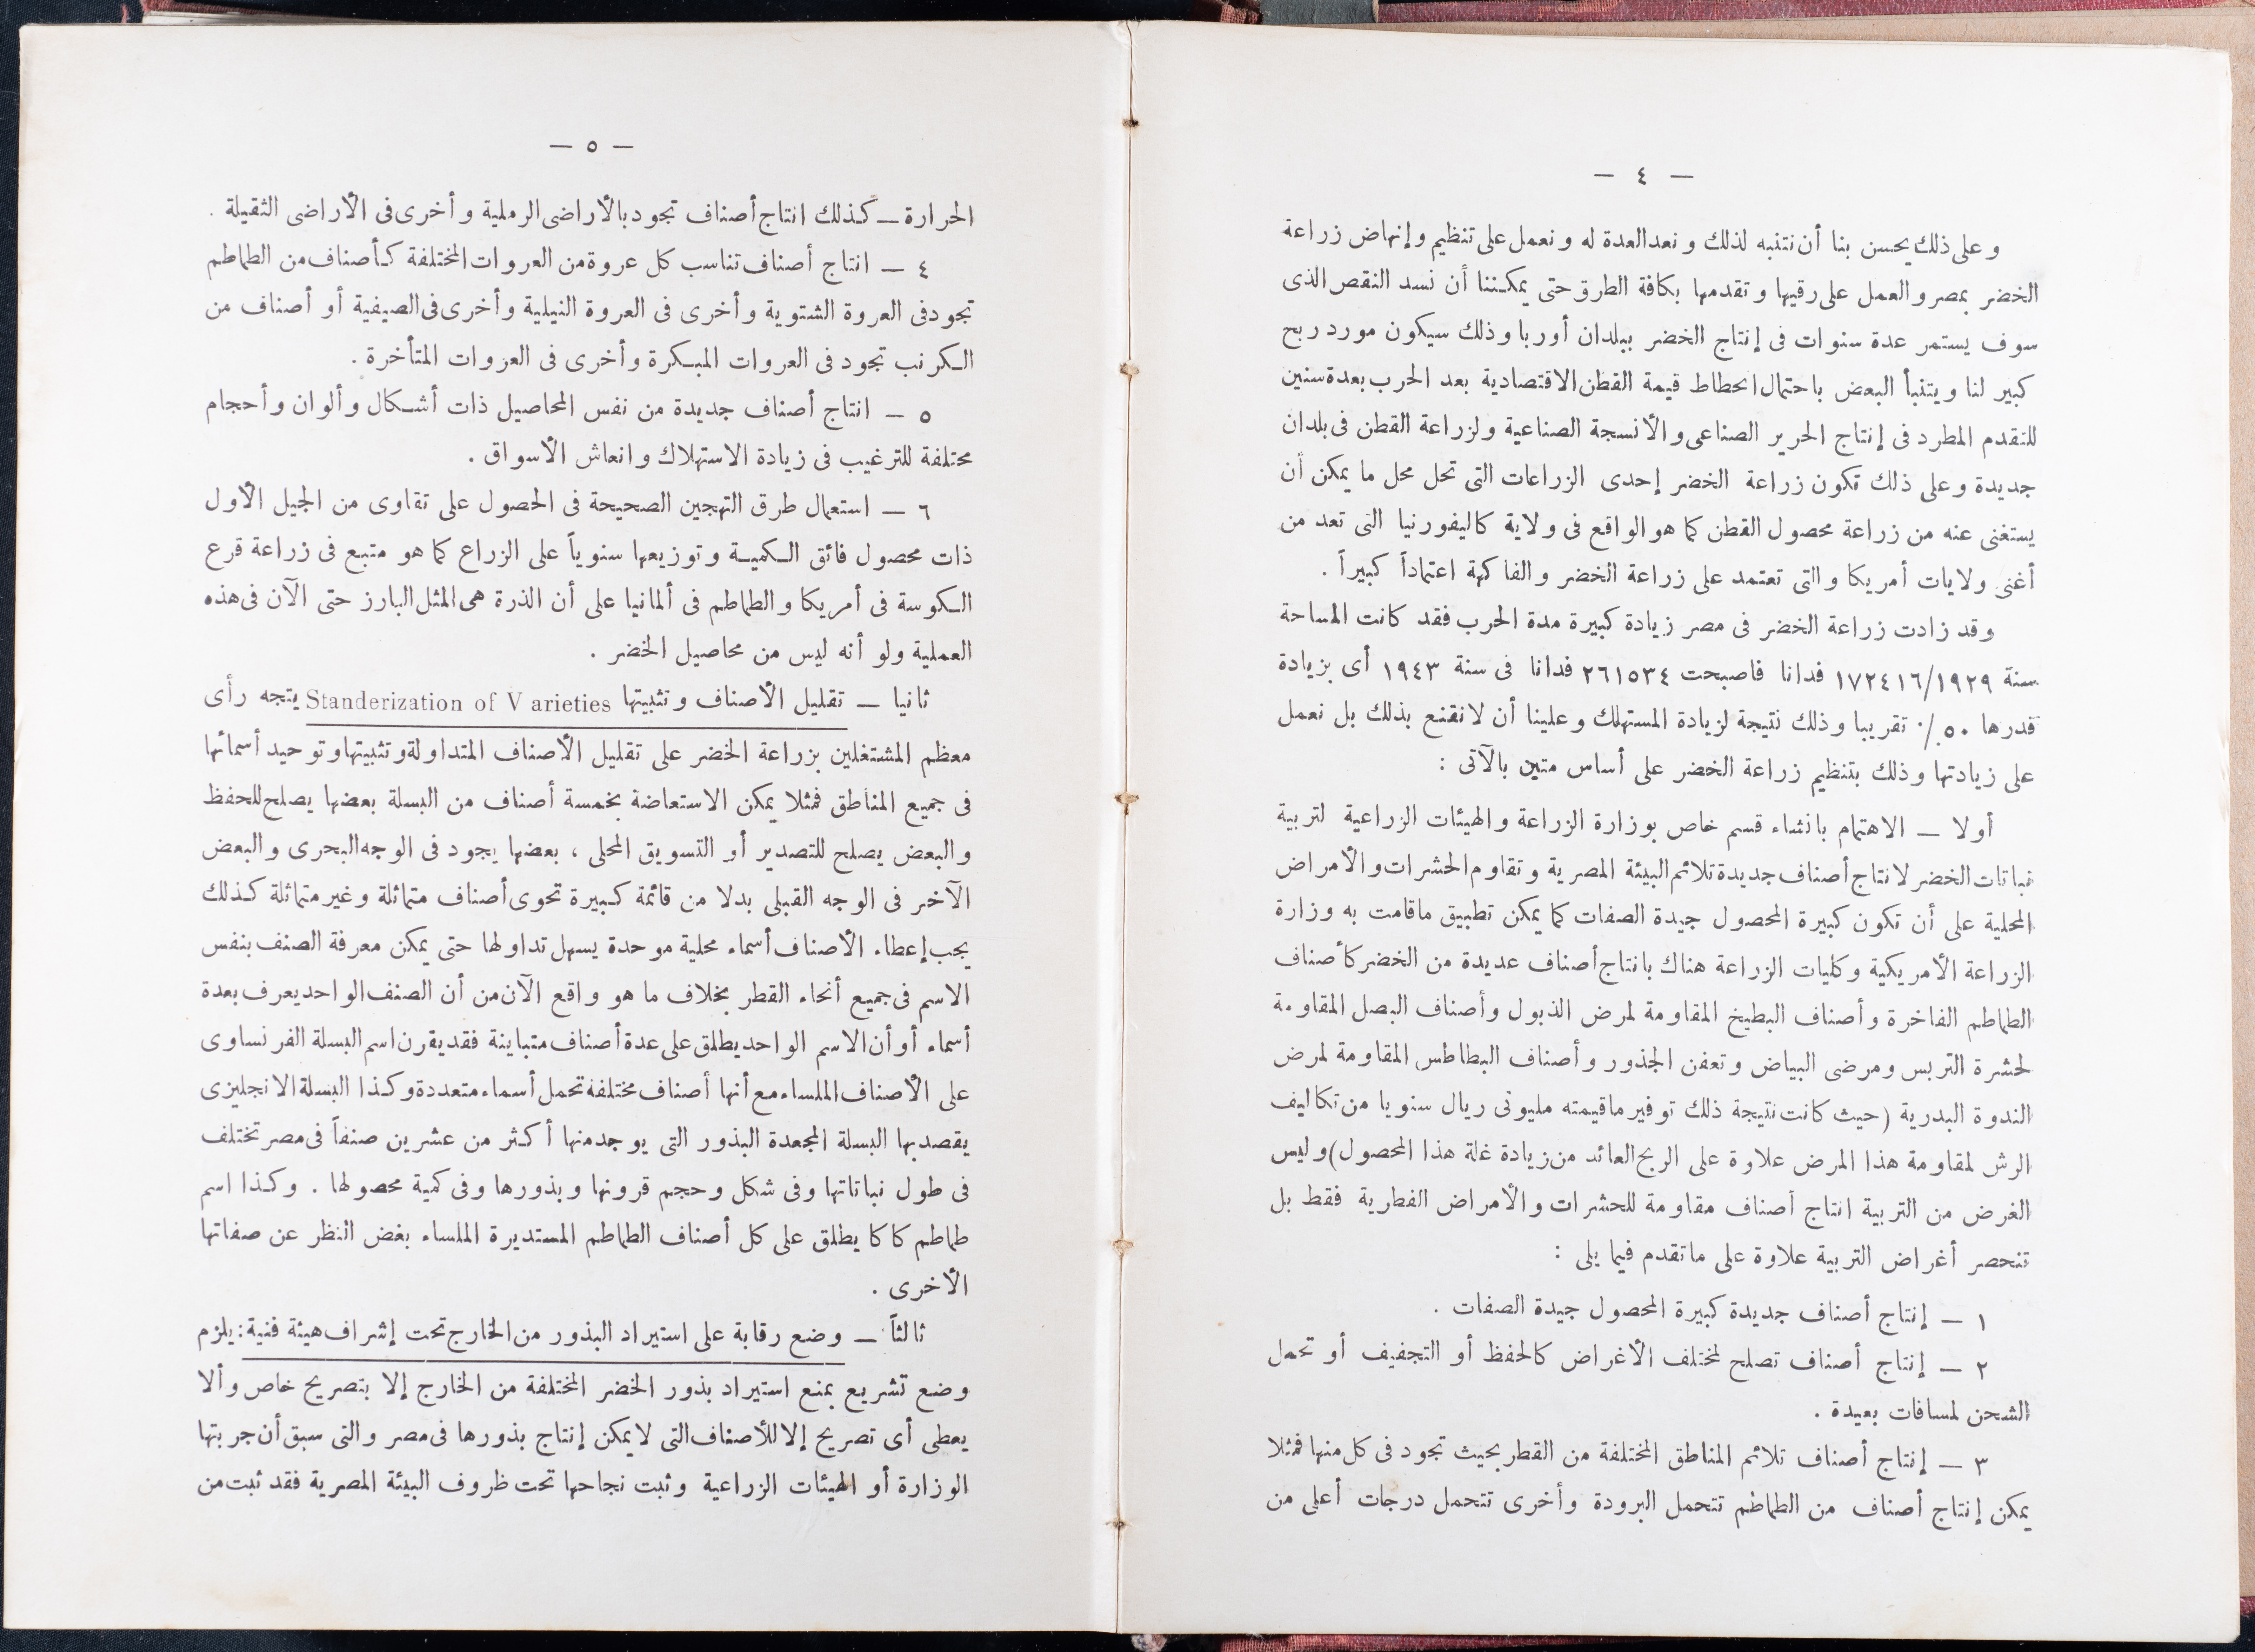 — ٤ —
وعلى ذلك يحسن بنا أن نتنبه لذلك ونعد العدة له ونعمل على تنظيم وإنهاض زراعة
الخضر بمصر والعمل على رقيها وتقدمها بكافة الطرق حتى يمكننا أن نسد النقص الذى
سوف يستمر عدة سنوات فى إنتاج الخضر ببلدان أوربا وذلك سيكون مورد ربح
كبير لنا ويتنبأ البعض باحتمال انحطاط قيمة القطن الاقتصادية بعد الحرب بعدة سنين
للتقدم المطرد فى إنتاج الحرير الصناعى والأنسجة الصناعية ولزراعة القطن فى بلدان
جديدة وعلى ذلك تكون زراعة الخضر إحدى الزراعات التى تحل محل ما يمكن أن
يستغنى عنه من زراعة محصول القطن كما هو الواقع فى ولاية كاليفورنيا التى تعد من
أغنى ولايات أمريكا والتى تعتمد على زراعة الخضر والفاكهة اعتماداً كبيراً .
وقد زادت زراعة الخضر فى مصر زيادة كبيرة مدة الحرب فقد كانت المساحة
سنة ١٧٢٤١٦/١٩٢٩ فدانا فاصبحت ٢٦١٥٣٤ فدانا فى سنة ١٩٤٣ أى بزيادة
قدرها ٥٠ ./٠ تقريبا وذلك نتيجة لزيادة المستهلك وعلينا أن لا نقنع بذلك بل نعمل
على زيادتها وذلك بتنظيم زراعة الخضر على أساس متين بالآتى :
أولا — الاهتمام بانشاء قسم خاص بوزارة الزراعة والهيئات الزراعية لتربية
نباتات الخضر لانتاج أصناف جديدة تلائم البيئة المصرية وتقاوم الحشرات والأمراض
المحلية على أن تكون كبيرة المحصول جيدة الصفات كما يمكن تطبيق ماقامت به وزارة
الزراعة الأمريكية وكليات الزراعة هناك بانتاج أصناف عديدة من الخضر كأصناف
الطماطم الفاخرة وأصناف البطيخ المقاومة لمرض الذبول وأصناف البصل المقاومة
لحشرة التربس ومرضى البياض وتعفن الجذور وأصناف البطاطس المقاومة لمرض
الندوة البدرية (حيث كانت نتيجة ذلك توفير ماقيمته مليونى ريال سنويا من تكاليف
الرش لمقاومة هذا المرض علاوة على الربح العائد من زيادة غلة هذا المحصول) وليس
الغرض من التربية انتاج أصناف مقاومة للحشرات والأمراض الفطرية فقط بل
تنحصر أغراض التربية علاوة على ماتقدم فيما يلى :
١ — إنتاج أصناف جديدة كبيرة المحصول جيدة الصفات .
٢ — إنتاج أصناف تصلح لمختلف الأغراض كالحفظ أو التجفيف أو تحمل
الشحن لمسافات بعيدة .
٣ — إنتاج أصناف تلائم المناطق المختلفة من القطر بحيث تجود فى كل منها فمثلا
يمكن إنتاج أصناف من الطماطم تتحمل البرودة وأخرى تتحمل درجات أعلى من
— ٥ —
الحرارة — كذلك انتاج أصناف تجود بالأراضى الرملية وأخرى فى الأراضى الثقيلة .
٤ — انتاج أصناف تناسب كل عروة من العروات المختلفة كأصناف من الطماطم
تجود فى العروة الشتوية وأخرى فى العروة النيلية وأخرى فى الصيفية أو أصناف من
الكرنب تجود فى العروات المبكرة وأخرى فى العروات المتأخرة .
٥ — انتاج أصناف جديدة من نفس المحاصيل ذات أشكال وألوان وأحجام
مختلفة للترغيب فى زيادة الاستهلاك وانعاش الأسواق .
٦ — استعمال طرق التهجين الصحيحة فى الحصول على تقاوى من الجيل الأول
ذات محصول فائق الكمية وتوزيعها سنوياً على الزراع كما هو متبع فى زراعة قرع
الكوسة فى أمريكا والطماطم فى ألمانيا على أن الذرة هى المثل البارز حتى الآن فى هذه
العملية ولو أنه ليس من محاصيل الخضر .
ثانيا — تقليل الأصناف وتثبيتها Standerization of V arieties يتجه رأى
معظم المشتغلين بزراعة الخضر على تقليل الأصناف المتداولة وتثبيتها وتوحيد أسمائها
فى جميع المناطق فمثلا يمكن الاستعاضة بخمسة أصناف من البسلة بعضها يصلح للحفظ
والبعض يصلح للتصدير أو التسويق المحلى ، بعضها يجود فى الوجه البحرى والبعض
الآخر فى الوجه القبلى بدلا من قائمة كبيرة تحوى أصناف متماثلة وغير متماثلة كذلك
يجب إعطاء الأصناف أسماء محلية موحدة يسهل تداولها حتى يمكن معرفة الصنف بنفس
الاسم فى جميع أنحاء القطر بخلاف ما هو واقع الآن من أن الصنف الواحد يعرف بعدة
أسماء أو أن الاسم الواحد يطلق على عدة أصناف متباينة فقد يقرن اسم البسلة الفرنساوى
على الأصناف الملساء مع أنها أصناف مختلفة تحمل أسماء متعددة وكذا البسلة الانجليزى
يقصد بها البسلة المجعدة البذور التى يوجد منها أكثر من عشرين صنفاً فى مصر تختلف
فى طول نباتاتها وفى شكل وحجم قرونها وبذورها وفى كمية محصولها . وكذا اسم
طماطم كاكا يطلق على كل أصناف الطماطم المستديرة الملساء بغض النظر عن صفاتها
الأخرى .
ثالثاً — وضع رقابة على استيراد البذور من الخارج تحت إشراف هيئة فنية : يلزم
وضع تشريع بمنع استيراد بذور الخضر المختلفة من الخارج إلا بتصريح خاص وألا
يعطى أى تصريح إلا للأصناف التى لا يمكن إنتاج بذورها فى مصر والتى سبق أن جربتها
الوزارة أو الهيئات الزراعية وثبت نجاحها تحت ظروف البيئة المصرية فقد ثبت من